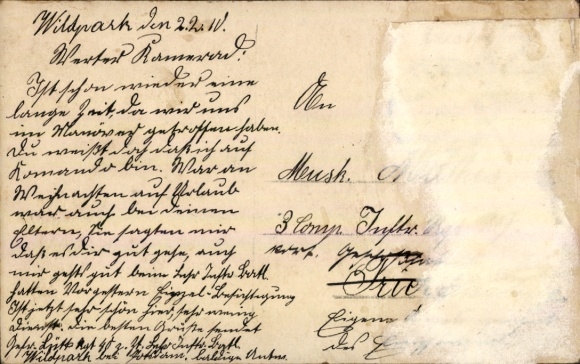 Wildpark den 2.2.10.
Werter Kamerad!
Ist schon wieder eine
lange Zeit, da wir uns
im Manöver getroffen haben.
Du weißt doch daß ich auf
Komando bin. War an
Weihnachten auf Urlaub
war auch bei deinen
Eltern, Sie sagten mir
daß es dir gut gehe, auch
mir gehts gut beim Lehr Inftr Batl.
hatten Vorgestern Einzel-Besichtigung
Ist jetzt sehr schön hier, sehr wenig
Dienst. Die besten Grüße sendet
Gefr. Lütt Rgt 40 z. Zt. Lehr Inftr. Batl.
Wildpark bei Potsdam. baldige Antw.
An
Musk.
3 Comp. Inftr.
Trie
Eigen
des